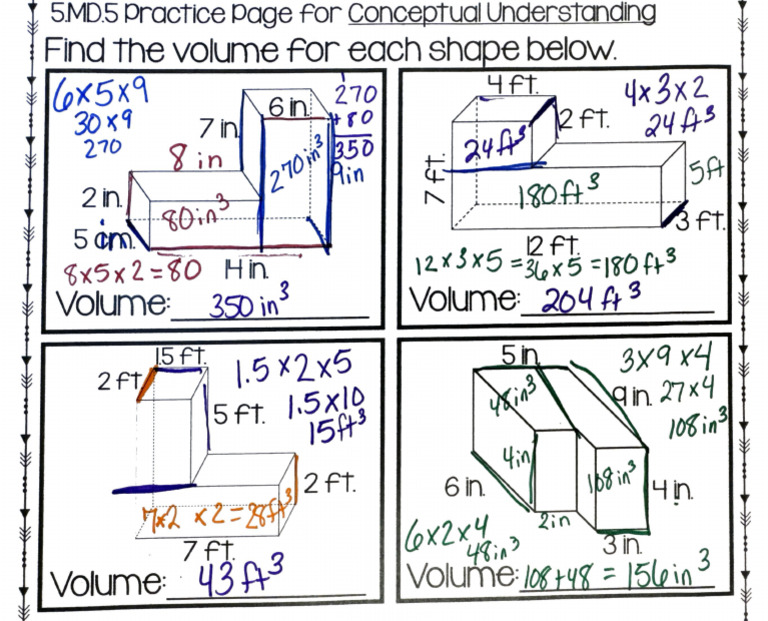 5.MD.5 Practice Page for Conceptual Understanding
Find the volume for each shape below.
6x5x9
30x9
270
6 in.
270
+80
350
7 in.
8 in
270 in³
9in
2 in.
80in³
5 in.
8x5x2=80
14 in.
Volume: 350 in³
4 ft.
4x3x2
24 ft³
2 ft.
24ft³
7 ft.
180ft³
5ft
3 ft.
12 ft.
12x3x5=36x5=180ft³
Volume: 204 ft³
1.5 ft.
2 ft.
1.5x2x5
1.5x10
15ft³
5 ft.
2 ft.
7x2 x2=28ft³
7 ft.
Volume: 43 ft³
5 in.
3x9x4
27x4
108in³
48in³
9 in.
4in
108in³
4 in.
6 in.
2in
3 in.
6x2x4
48in³
Volume: 108+48 = 156in³